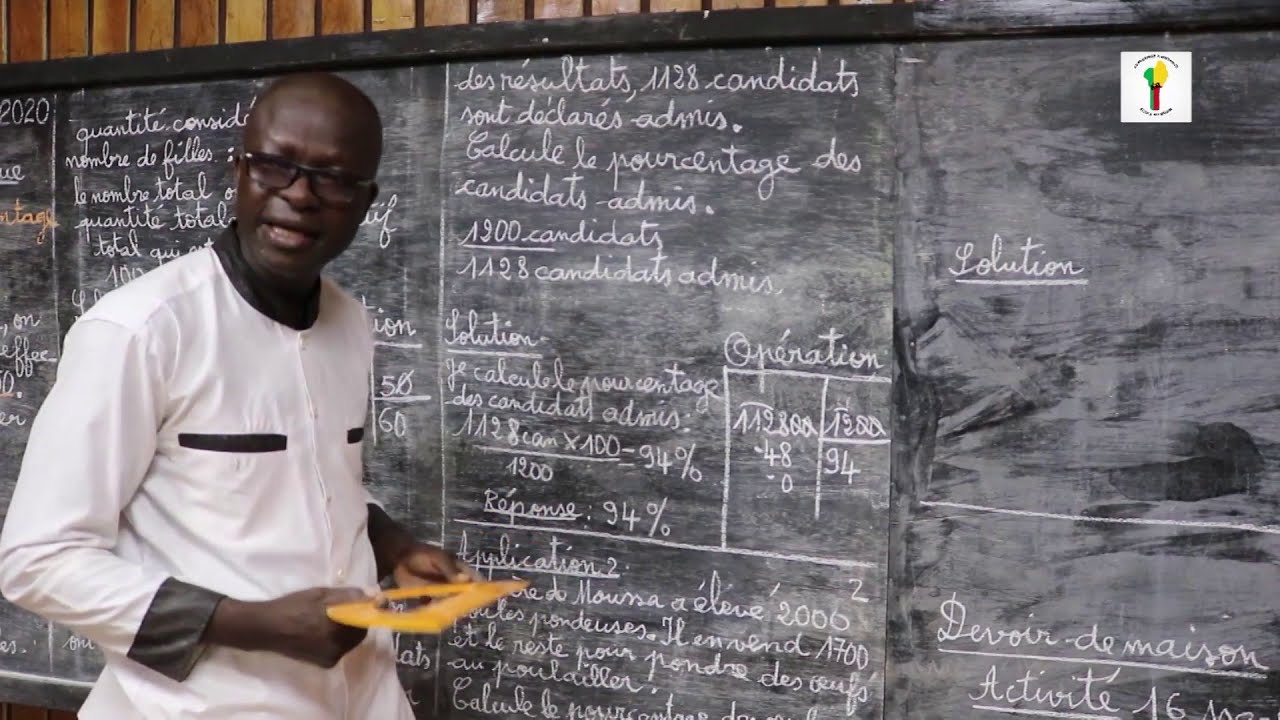 2020
ontage
, on
effec
quantité considé
nombre de filles :
le nombre total
quantité total
total qui
100
tion
50
60
des résultats, 1128 candidats
sont déclarés admis.
Calcule le pourcentage des
candidats admis.
1200 candidats
1128 candidats admis.
Solution
Je calcule le pourcentage
des candidats admis :
1128 can x 100 = 94%
1200
Réponse : 94%
Opération
112800 1200
-48 94
-0
Application 2
de Moussa a élevé 2000
poules pondeuses. Il en vend 1700
et le reste pour pondre des œufs
au poulailler.
Calcule le pourcentage
2
Solution
Devoir de maison
Activité 16